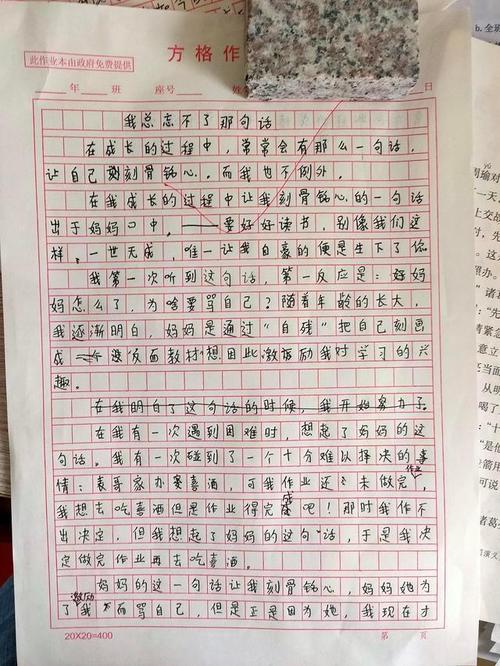 此作业本由政府免费提供
方格作
年 班 座号 姓 日
我总忘不了那句话
在成长的过程中，常常会有那么一句话，
让自己刻骨铭心。而我也不例外。
在我成长的过程中让我刻骨铭心的一句话
出于妈妈口中。——要好好读书，别像我们这
样，一世无成，唯一让我自豪的便是生下了你
我第一次听到这句话，第一反应是：好妈
妈怎么了，为啥要骂自己？随着年龄的长大，
我逐渐明白，妈妈是通过“自残”把自己刻画
成一个反面教材想因此激励我对学习的兴
趣。
在我明白了这句话的时候，我开始努力了。
在我有一次遇到困难时，想起了妈妈的这
句话。我有一次碰到了一个十分难以择决的事
情：表哥家办宴喜酒，可我作业还未做完，
我想去吃喜酒但是作业得完成吧！那时我作不
出决定，但我想起了妈妈的这句话，于是我决
定做完作业再去吃喜酒。
妈妈的这一句话让我刻骨铭心，妈妈她为
了激励我而骂自己，但是正是因为她，我现在才
20X20=400
第 页